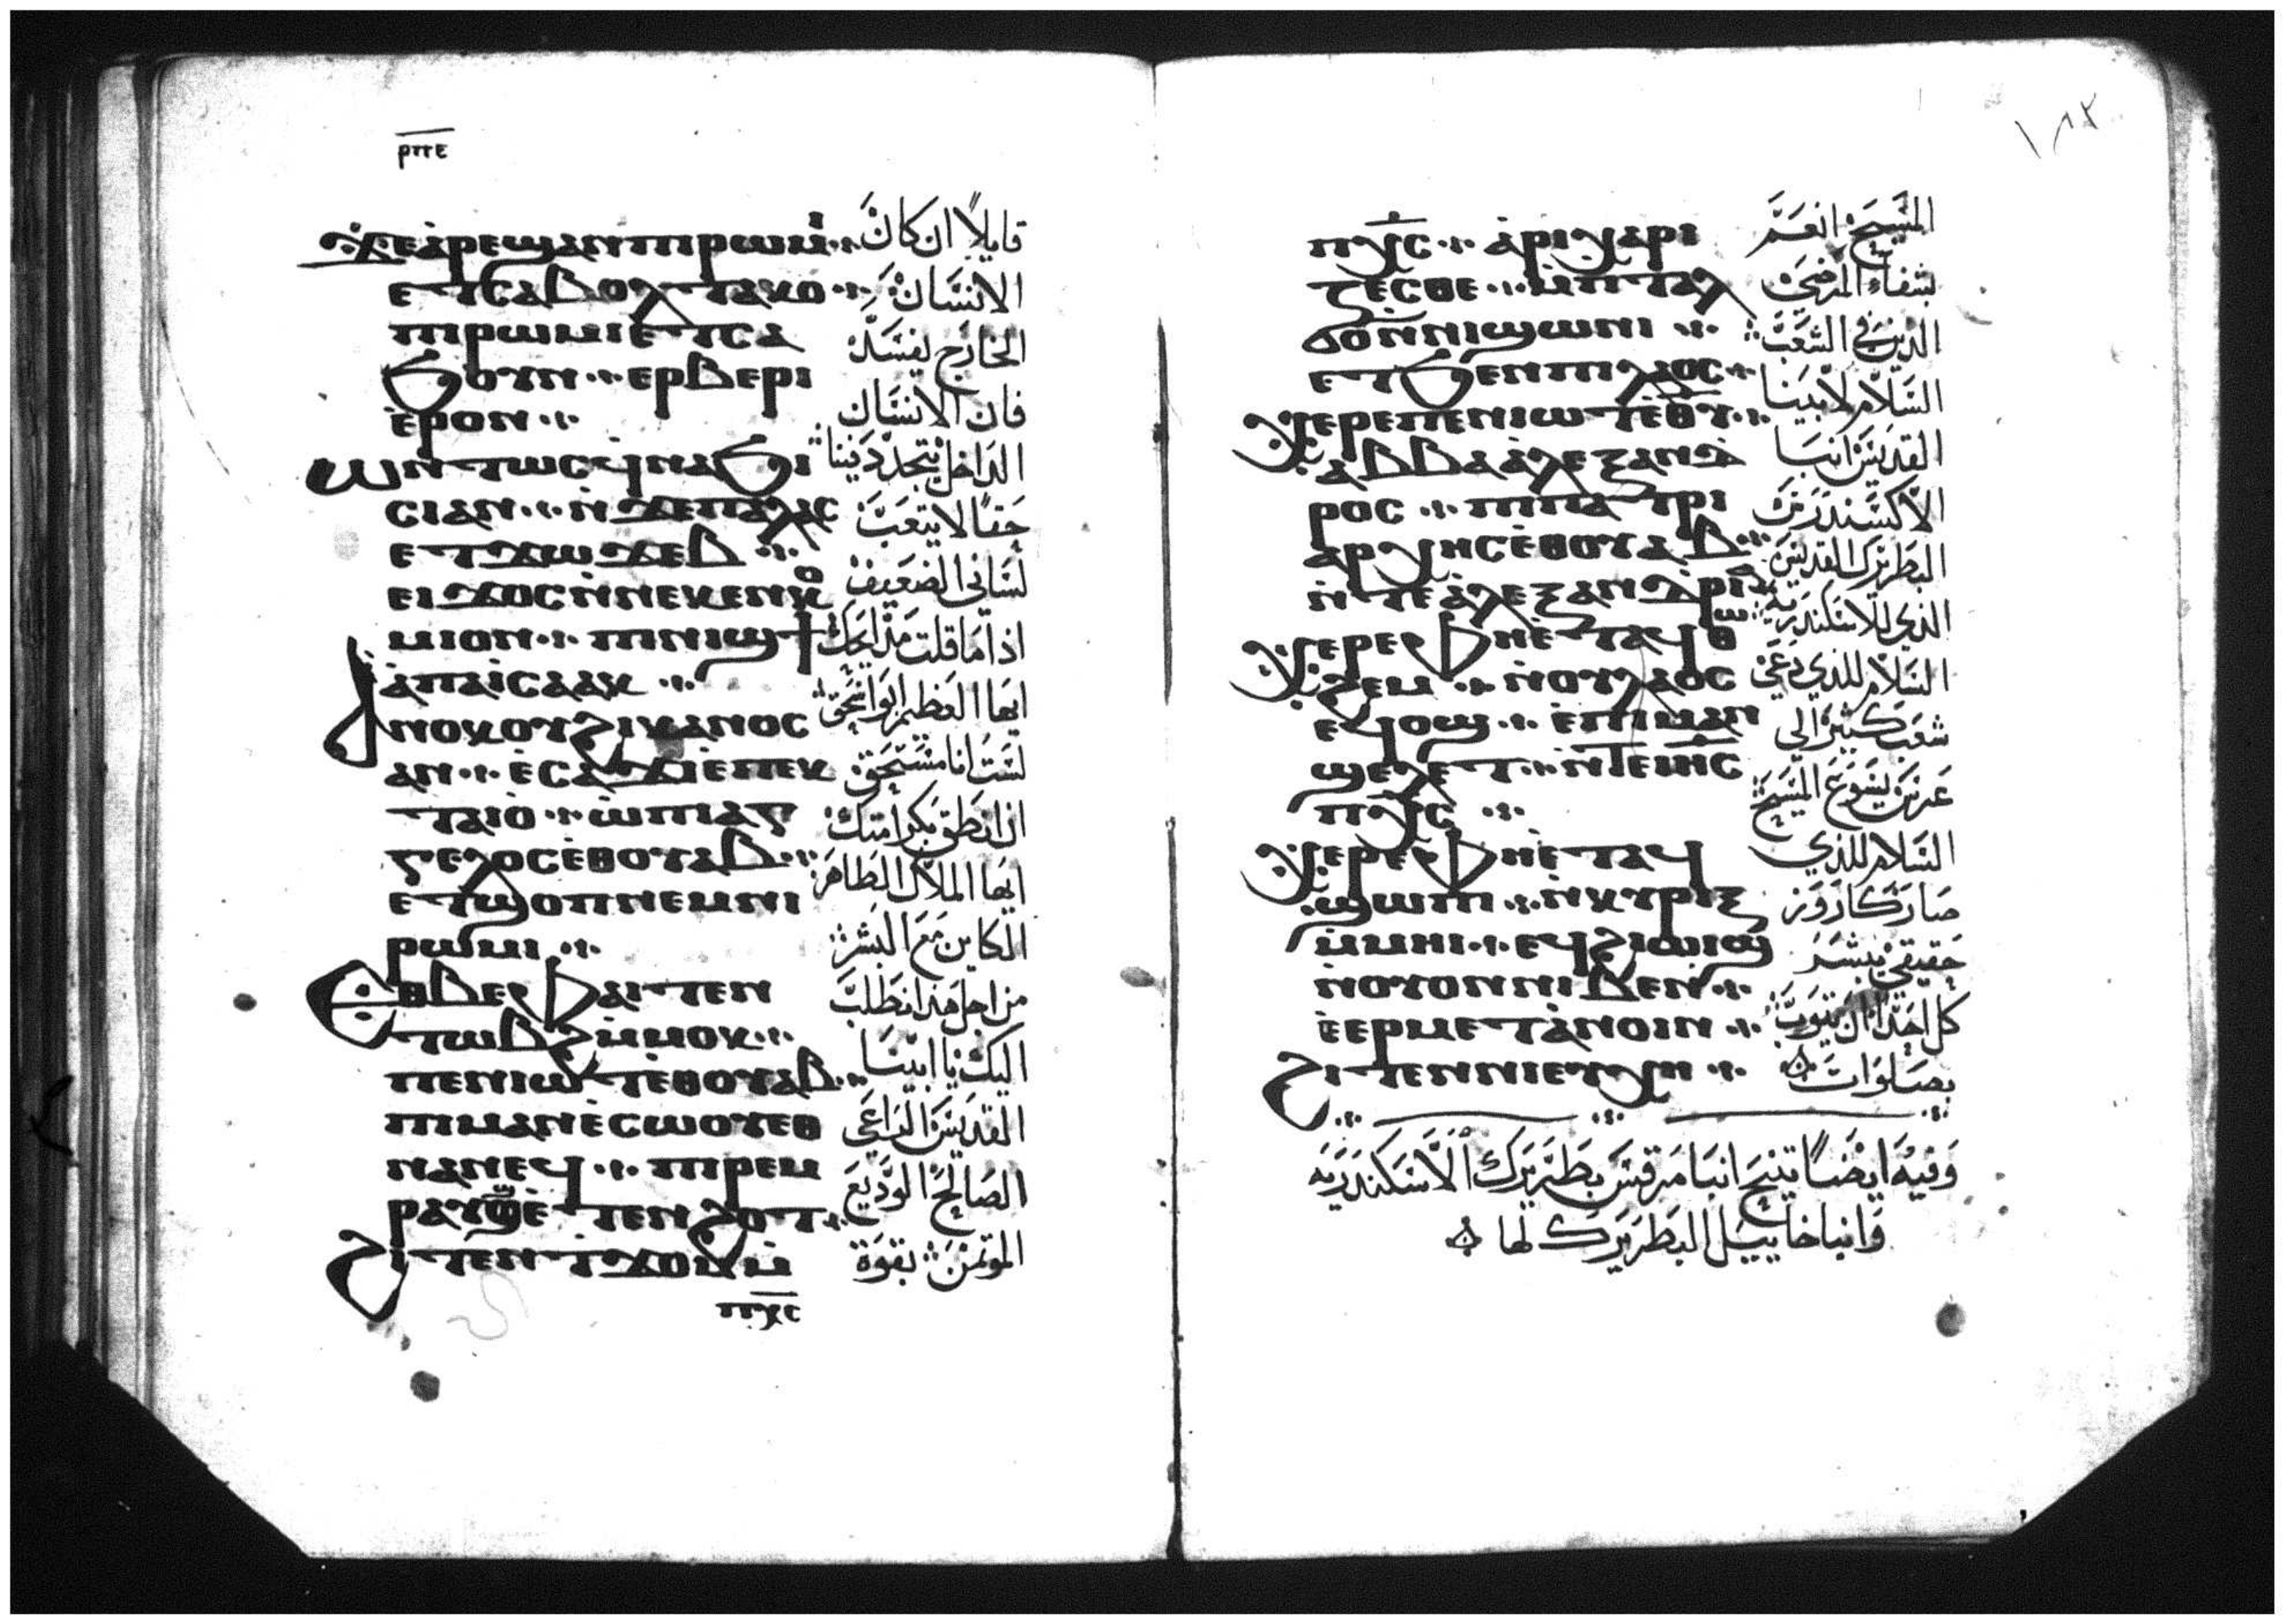 ⲣⲡⲉ
ϫⲉⲁ̀ⲣⲉϣⲁⲛⲡⲓⲣⲱⲙⲓ
ⲉⲧⲥⲁⲃⲟⲗⲧⲁⲕⲟ
ⲡⲓⲣⲱⲙⲓⲉⲧⲥⲁ
ϧⲟⲩⲛ ⲉⲣⲃⲉⲣⲓ
ⲉ̀ⲣⲟⲛ
ⲱⲛⲧⲱⲥϥ̀ⲛⲁϧⲓ
ⲥⲓⲁⲛ ⲛ̀ϫⲉⲡⲁⲗⲁⲥ
ⲉⲧϫⲱϫⲉⲃ
ⲉⲓϫⲟⲥⲛ̀ⲛⲉⲕⲉⲛⲕⲟ
ⲙⲓⲟⲛ ⲡⲓⲛⲓϣϯ
ⲁ̀ⲡⲁⲓ̀ⲥⲁⲁⲕ
ⲁⲛⲟⲕⲟⲩϩⲓⲕⲁⲛⲟⲥ
ⲁⲛ ⲉ̀ⲥⲁϫⲓⲉ̀ⲡⲉⲕ
ⲧⲁⲓⲟ̀ ⲱ̀ⲡⲓⲁⲅ
ⲅⲉⲗⲟⲥⲉ̀ⲑⲟⲩⲁⲃ
ⲉⲧϣⲟⲡⲛⲉⲙⲛⲓ
ⲣⲱⲙⲓ
ⲉⲑⲃⲉⲫⲁⲓⲧⲉⲛ
ⲧⲱⲃϩⲙ̀ⲙⲟⲕ
ⲡⲉⲛⲓⲱⲧⲉ̀ⲑⲟⲩⲁⲃ
ⲡⲓⲙⲁⲛⲉ̀ⲥⲱⲟⲩⲉⲑ
ⲛⲁⲛⲉϥ ⲡⲓⲣⲉⲙ
ⲣⲁⲩϣⲉ̀ⲧⲉⲛϩⲟⲧ
ϩⲓⲧⲉⲛⲧ̀ϫⲟⲙⲙ̀
ⲡⲭⲥ
قايلاً ان كان
الانسان
الخارج يفسد
فان الانسان
الداخل يتجدد فينا
حقاً لا يتعب
لساني الضعيف
اذا ما قلت مدايحك
ايها العظيم ابوا اسحق
لست انا مستحق
ان انطق بكرامتك
ايها الملاك الطاهر
الكاين مع البشر
من اجل هذا نطلب
اليك يا ابينا
القديس الراعي
الصالح الوديع
الموتمن بقوة
١٨٢
ⲡⲭⲥ ⲁ̀ⲣⲓⲭⲁⲣⲓ
ⲍⲉⲥⲑⲉ ⲙ̀ⲡⲧⲁⲗ
ϭⲟⲛ̀ⲛⲓϣⲱⲛⲓ
ⲉⲧϧⲉⲛⲡⲓⲗⲁⲟⲥ
ⲭⲉⲣⲉⲡⲉⲛⲓⲱⲧⲉ̀ⲑⲩ
ⲁⲃⲃⲁⲁ̀ⲗⲉⲝⲁⲛⲇ
ⲣⲟⲥ ⲡⲓⲡⲁⲧⲣⲓ
ⲁⲣⲭⲏⲥⲉ̀ⲑⲟⲩⲁⲃ
ⲛ̀ⲧⲉⲁ̀ⲗⲉⲝⲁⲛⲇⲣⲓⲁ
ⲭⲉⲣⲉⲫⲏⲉ̀ⲧⲁϥⲑⲱ
ϩⲉⲙ ⲛ̀ⲟⲩⲗⲁⲟⲥ
ⲉϥⲟϣ ⲉ̀ⲡⲓⲙⲁⲛ
ϣⲉⲗⲉⲧ ⲛ̀ⲧⲉⲓⲏⲥ
ⲡⲭⲥ
ⲭⲉⲣⲉⲫⲏⲉ̀ⲧⲁϥ
ϣⲱⲡⲓ ⲛ̀ⲕⲩⲣⲓⲝ
ⲙ̀ⲙⲏⲓ ⲉϥϩⲓⲱⲓϣ
ⲛ̀ⲟⲩⲟⲛⲛⲓⲃⲉⲛ
ⲉ̀ⲉⲣⲙⲉⲧⲁ̀ⲛⲟⲓⲛ
ϩⲓⲧⲉⲛⲛⲓⲉⲩⲭⲏ
المسيح انعم
بشفاء المرضى
الذين في الشعب
السلام لابينا
القديس انبا
الاكسندرس
البطريرك القديس
الذي للاسكندرية
السلام للذي دعي
شعب كثير الى
عرس يسوع المسيح
السلام للذي
صار كاروز
حقيقي يبشر
كل احد ان يتوب
بصلوات
وفيه ايضاً تنيح انبا مرقس بطريرك الاسكندرية
وانبا خاييل البطريرك لها